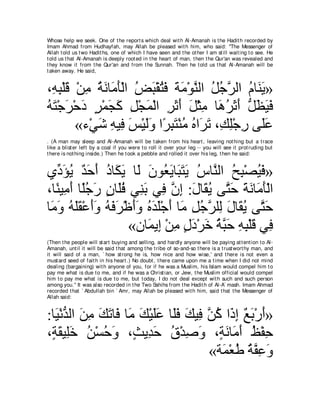 Whose help we seek. One of the reports which deal with Al-Amanah is the Hadith recorded by
Imam Ahmad from Hudhayfah, may Allah be pleased with him, who said: "The Messenger of
Allah told us two Hadiths, one of which I have seen and the other I am still waiting to see. He
told us that Al-Amanah is deeply rooted in the heart of man, then the Qur'an was revealed and
they know it from the Qur'an and from the Sunnah. Then he told us that Al-Amanah will be
taken away. He said,
«يَنَامُ الرَّجُلُ النَّوْمَةَ فَتُقْبَضُ الْأَمَانَةُ مِنْ قَلْبِهِ،
فَيَظَلُّ أَثَرُهَا مِثْلَ أَثَرِ الْمَجْلِ كَجَمْرٍ دَحْرَجْتَهُ
عَلَى رِجْلِكَ، تَرَاهُ مُنْتَبِرًا وَلَيْسَ فِيهِ شَيْء»
. (A man may sleep and Al-Amanah will be taken from his heart, leaving nothing but a trace
like a blister left by a coal if you were to roll it over your leg -- you will see it protruding but
there is nothing inside.) Then he took a pebble and rolled it over his leg, then he said:
فَيُصْبِحُ النَّاسُ يَتَبَايَعُونَ لَا يَكَادُ أَحَدٌ يُؤَدِّي
الْأَمَانَةَ حَتَّى يُقَالَ: إِنَّ فِي بَنِي فُلَانٍ رَجُلًا أَمِينًا،
حَتَّى يُقَالَ لِلرَّجُلِ مَا أَجْلَدَهُ وَأَظْرَفَهُ وَأَعْقَلَهُ وَمَا
فِي قَلْبِهِ حَبَّةُ خَرْدَلٍ مِنْ إِيمَان»
(Then the people will start buying and selling, and hardly anyone will be paying attention to Al-
Amanah, until it will be said that among the tribe of so-and-so there is a trustworthy man, and
it will said of a man, `how strong he is, how nice and how wise,' and there is not even a
mustard seed of faith in his heart.) No doubt, there came upon me a time when I did not mind
dealing (bargaining) with anyone of you, for if he was a Muslim, his Islam would compel him to
pay me what is due to me, and if he was a Christian, or Jew, the Muslim official would compel
him to pay me what is due to me, but today, I do not deal except with such and such person
among you." It was also recorded in the Two Sahihs from the Hadith of Al-A`mash. Imam Ahmad
recorded that `Abdullah bin `Amr, may Allah be pleased with him, said that the Messenger of
Allah said:
«أَرْبَعٌ إِذَا كُنَّ فِيكَ فَلَا عَلَيْكَ مَا فَاتَكَ مِنَ الدُّنْيَا:
حِفْظُ أَمَانَةٍ، وَصِدْقُ حَدِيثٍ، وَحُسْنُ خَلِيقَةٍ،
وَعِفَّةُ طُعْمَة»